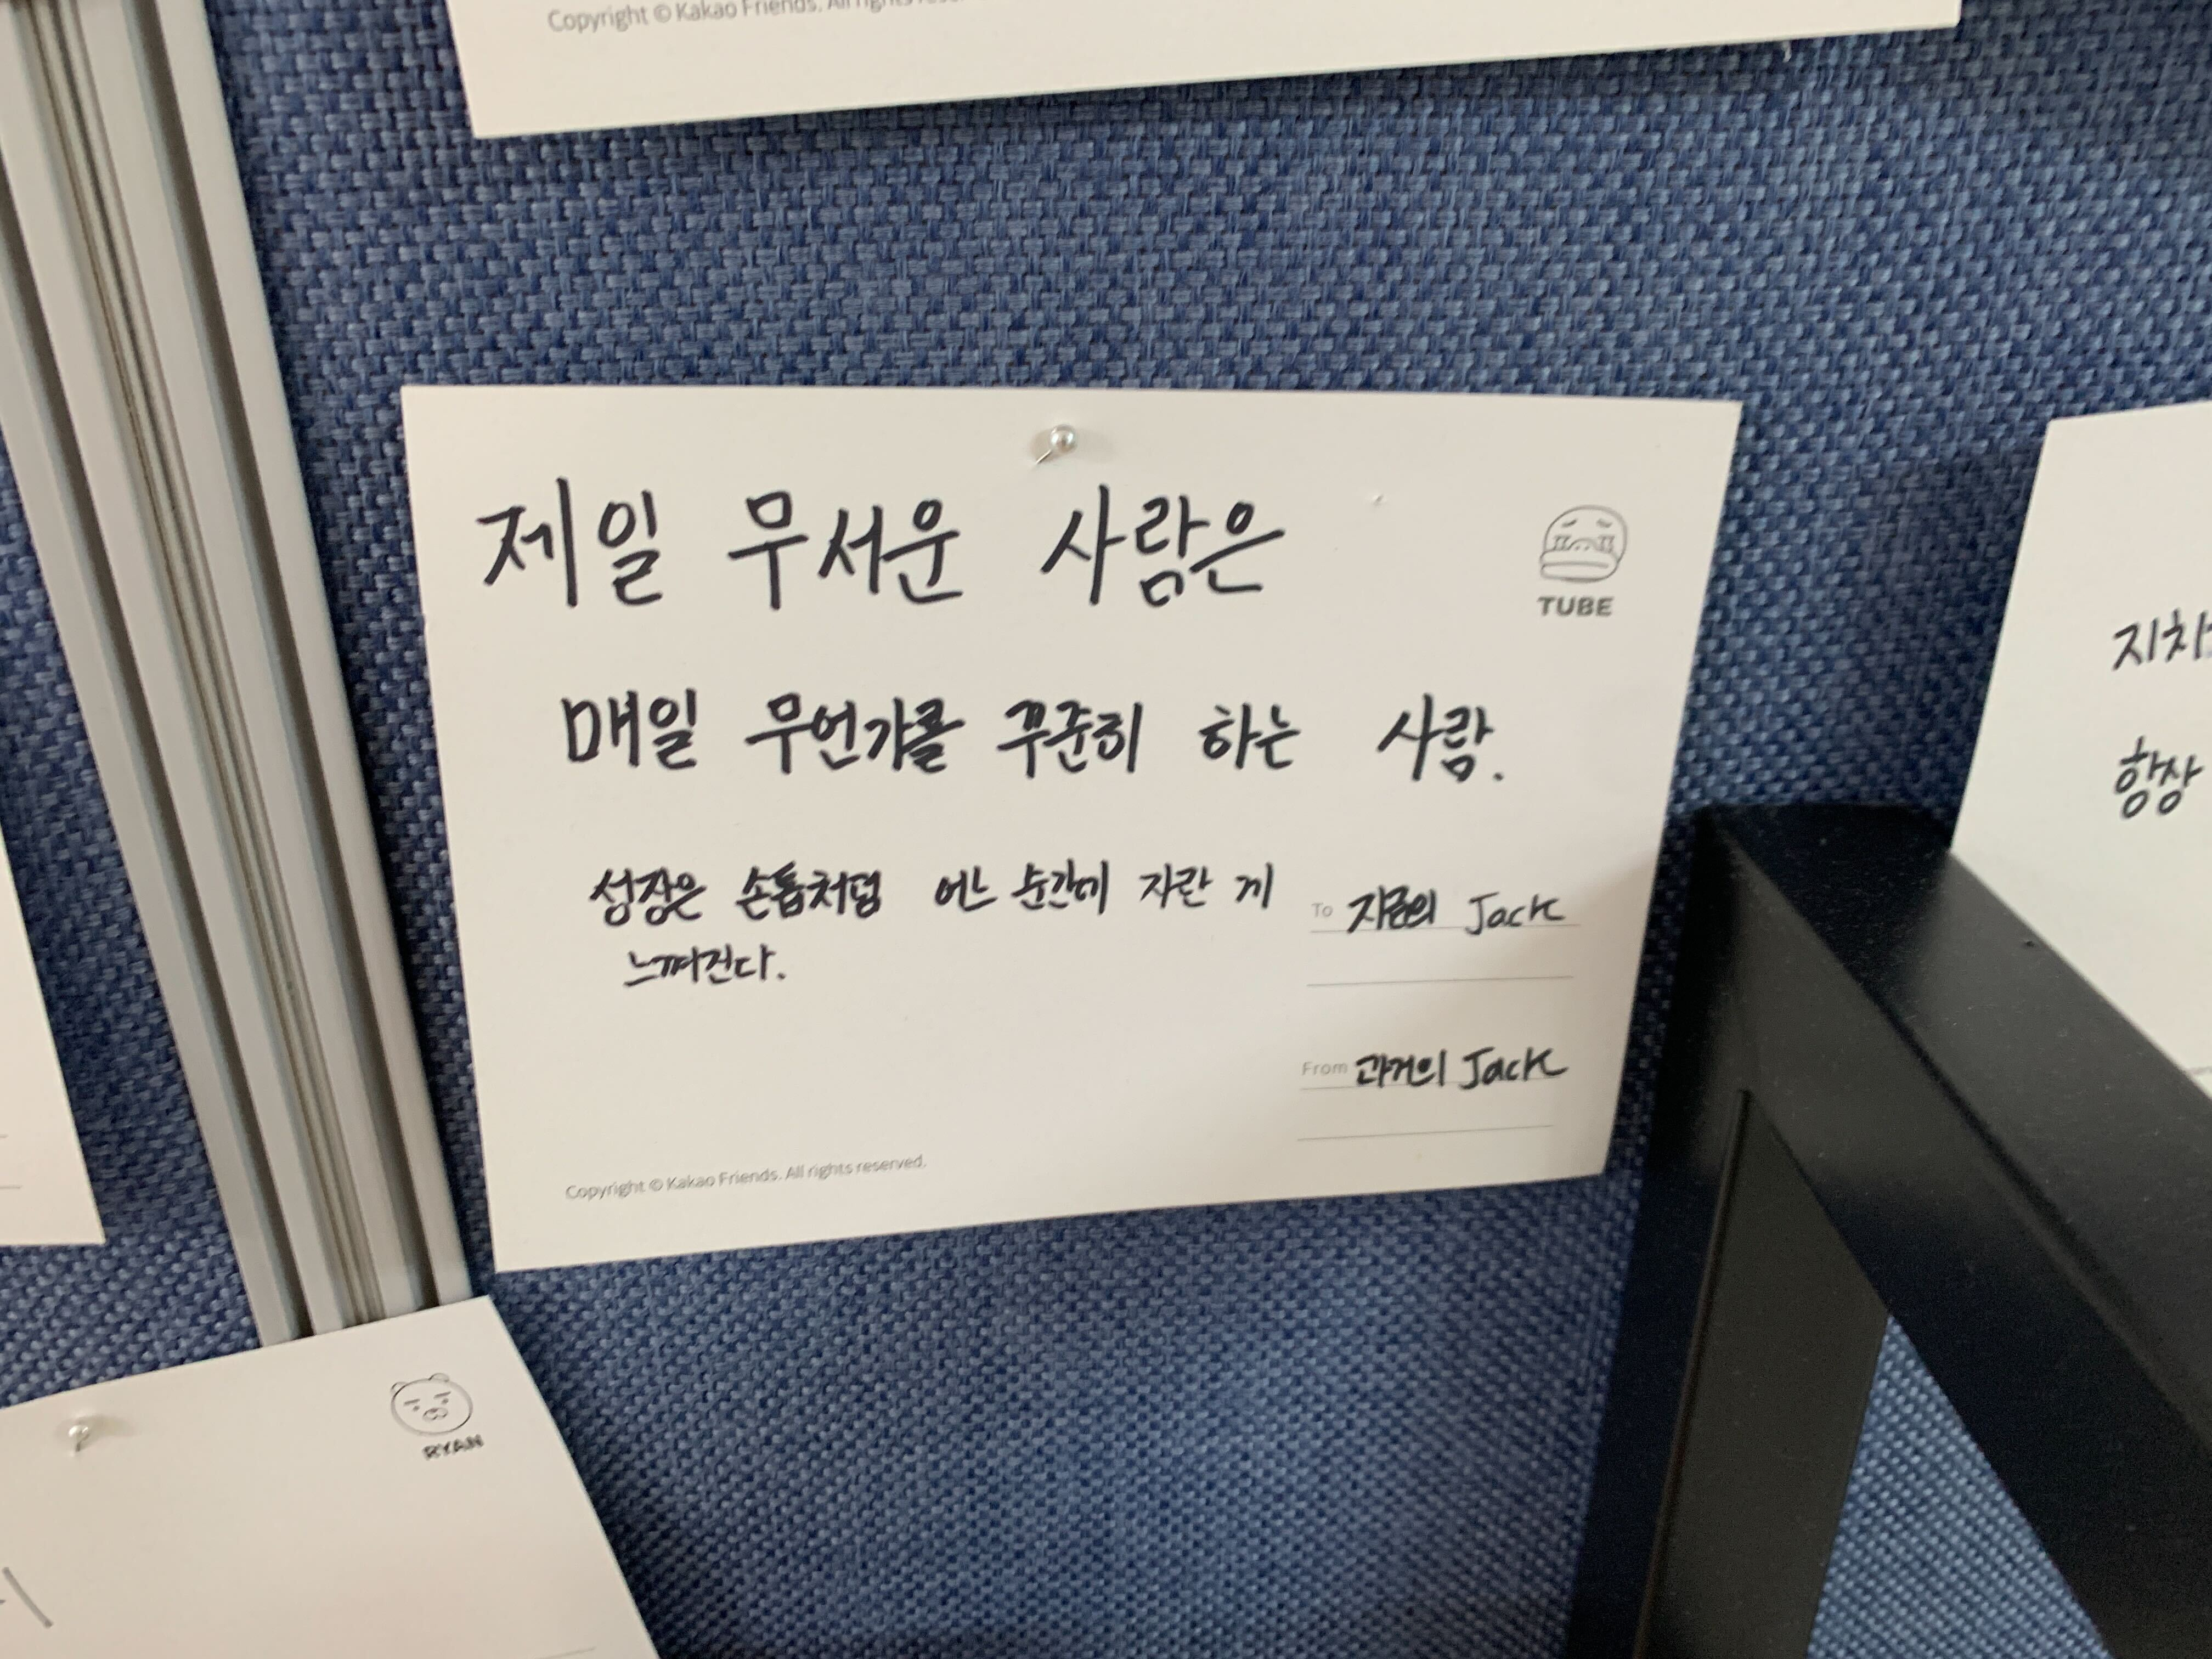 Copyright © Kakao Friends. All rights
제일 무서운 사람은
TUBE
매일 무언가를 꾸준히 하는 사람.
성장은 손톱처럼 어느 순간에 자란 게
느껴진다.
To 지금의 Jack
From 과거의 Jack
Copyright © Kakao Friends. All rights reserved.
지치
항상
RYAN